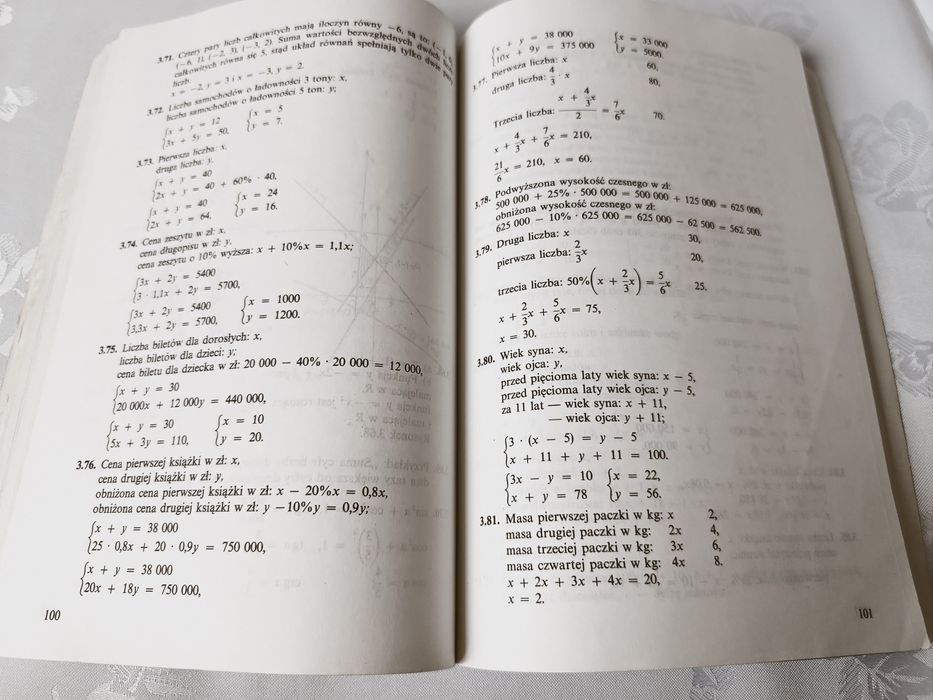 3.71. Cztery pary liczb całkowitych mają iloczyn równy −6, są to: (−1, 6),
(−6, 1), (−2, 3), (−3, 2). Suma wartości bezwzględnych dwóch liczb
całkowitych równa się 5, stąd układ równań spełniają tylko dwie pary
liczb.
x = −2, y = 3 i x = −3, y = 2.
3.72. Liczba samochodów o ładowności 3 tony: x,
liczba samochodów o ładowności 5 ton: y;
{x + y = 12 {x = 5
{3x + 5y = 50, {y = 7.
3.73. Pierwsza liczba: x,
druga liczba: y,
{x + y = 40
{2x + y = 40 + 60% · 40,
{x + y = 40 {x = 24
{2x + y = 64, {y = 16.
3.74. Cena zeszytu w zł: x,
cena długopisu w zł: y,
cena zeszytu o 10% wyższa: x + 10%x = 1,1x;
{3x + 2y = 5400
{3 · 1,1x + 2y = 5700,
{3x + 2y = 5400 {x = 1000
{3,3x + 2y = 5700, {y = 1200.
3.75. Liczba biletów dla dorosłych: x,
liczba biletów dla dzieci: y;
cena biletu dla dziecka w zł: 20 000 − 40% · 20 000 = 12 000,
{x + y = 30
{20 000x + 12 000y = 440 000,
{x + y = 30 {x = 10
{5x + 3y = 110, {y = 20.
3.76. Cena pierwszej książki w zł: x,
cena drugiej książki w zł: y,
obniżona cena pierwszej książki w zł: x − 20%x = 0,8x,
obniżona cena drugiej książki w zł: y −10%y = 0,9y;
{x + y = 38 000
{25 · 0,8x + 20 · 0,9y = 750 000,
{x + y = 38 000
{20x + 18y = 750 000,
100
{x + y = 38 000 {x = 33 000
{10x + 9y = 375 000 {y = 5000.
3.77. Pierwsza liczba: x 60,
druga liczba: 4/3 · x 80,
Trzecia liczba: (x + 4/3x)/2 = 7/6x 70.
x + 4/3x + 7/6x = 210,
21/6x = 210, x = 60.
3.78. Podwyższona wysokość czesnego w zł:
500 000 + 25% · 500 000 = 500 000 + 125 000 = 625 000,
obniżona wysokość czesnego w zł:
625 000 − 10% · 625 000 = 625 000 − 62 500 = 562 500.
3.79. Druga liczba: x 30,
pierwsza liczba: 2/3x 20,
trzecia liczba: 50%(x + 2/3x) = 5/6x 25.
x + 2/3x + 5/6x = 75,
x = 30.
3.80. Wiek syna: x,
wiek ojca: y,
przed pięcioma laty wiek syna: x − 5,
przed pięcioma laty wiek ojca: y − 5,
za 11 lat — wiek syna: x + 11,
— wiek ojca: y + 11;
{3 · (x − 5) = y − 5
{x + 11 + y + 11 = 100.
{3x − y = 10 {x = 22,
{x + y = 78 {y = 56.
3.81. Masa pierwszej paczki w kg: x 2,
masa drugiej paczki w kg: 2x 4,
masa trzeciej paczki w kg: 3x 6,
masa czwartej paczki w kg: 4x 8.
x + 2x + 3x + 4x = 20,
x = 2.
101